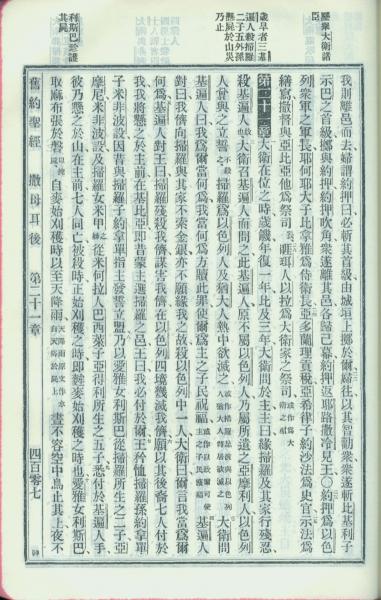 歷舉大衛諸
臣
歲旱者三基
遍人殺掃羅
二子五孫
懸屍於山災
乃止
利斯巴
其屍
我則離邑而去婦謂約押曰必斬其首級由城垣上擲於爾婦往以其智勸眾眾遂斬比基利子
示巴之首級擲與約押約押吹角眾遂離其邑各歸己幕約押返耶路撒冷見王〇約押為以色
列眾軍之軍長耶何耶大子比拿雅為侍衛長亞多蘭理貢稅亞希律子約沙法為史官示法為
繕寫撒督與亞比亞他為祭司睚珥人以拉為大衛家之祭司
第二十一章大衛在位之時歲饑年復一年比及三年大衛問於主主曰緣掃羅及其家行殘忍
殺基遍人故大衛召基遍人而問之此基遍人原不屬以色列人乃屬所遺之亞摩利人以色列
人嘗與之立誓不殺掃羅為以色列人及猶大人熱中欲滅之大衛問
基遍人曰我為爾當何為我當何方贖此罪使爾為主之子民祝福基遍人
對曰我儕向掃羅與其家不索金銀亦不願緣我之故殺以色列中一人大衛曰爾言我當為爾
何為基遍人對王曰掃羅殘殺我儕謀害我儕在以色列四境幾滅我儕願以其後裔七人付於
我我將懸之於主前在基比亞即昔蒙主選掃羅之邑王曰我必付於爾王矜恤掃羅孫約拿單
子米非波設因昔與掃羅子約拿單指主發誓立盟乃以愛雅女利斯巴從掃羅所生之二子亞
摩尼米非波設及掃羅女米甲從米何拉人巴西萊子亞得利所生之五子悉付於基遍人手
彼乃懸之於山在主前七人同亡被殺時正始刈穫之時即始刈麰麥之時也愛雅女利斯巴
取麻布張於磐自麥始刈穫時以至天降雨晝不容空中鳥止其上夜不
舊約聖經 撒母耳後 第二十一章 四百零七